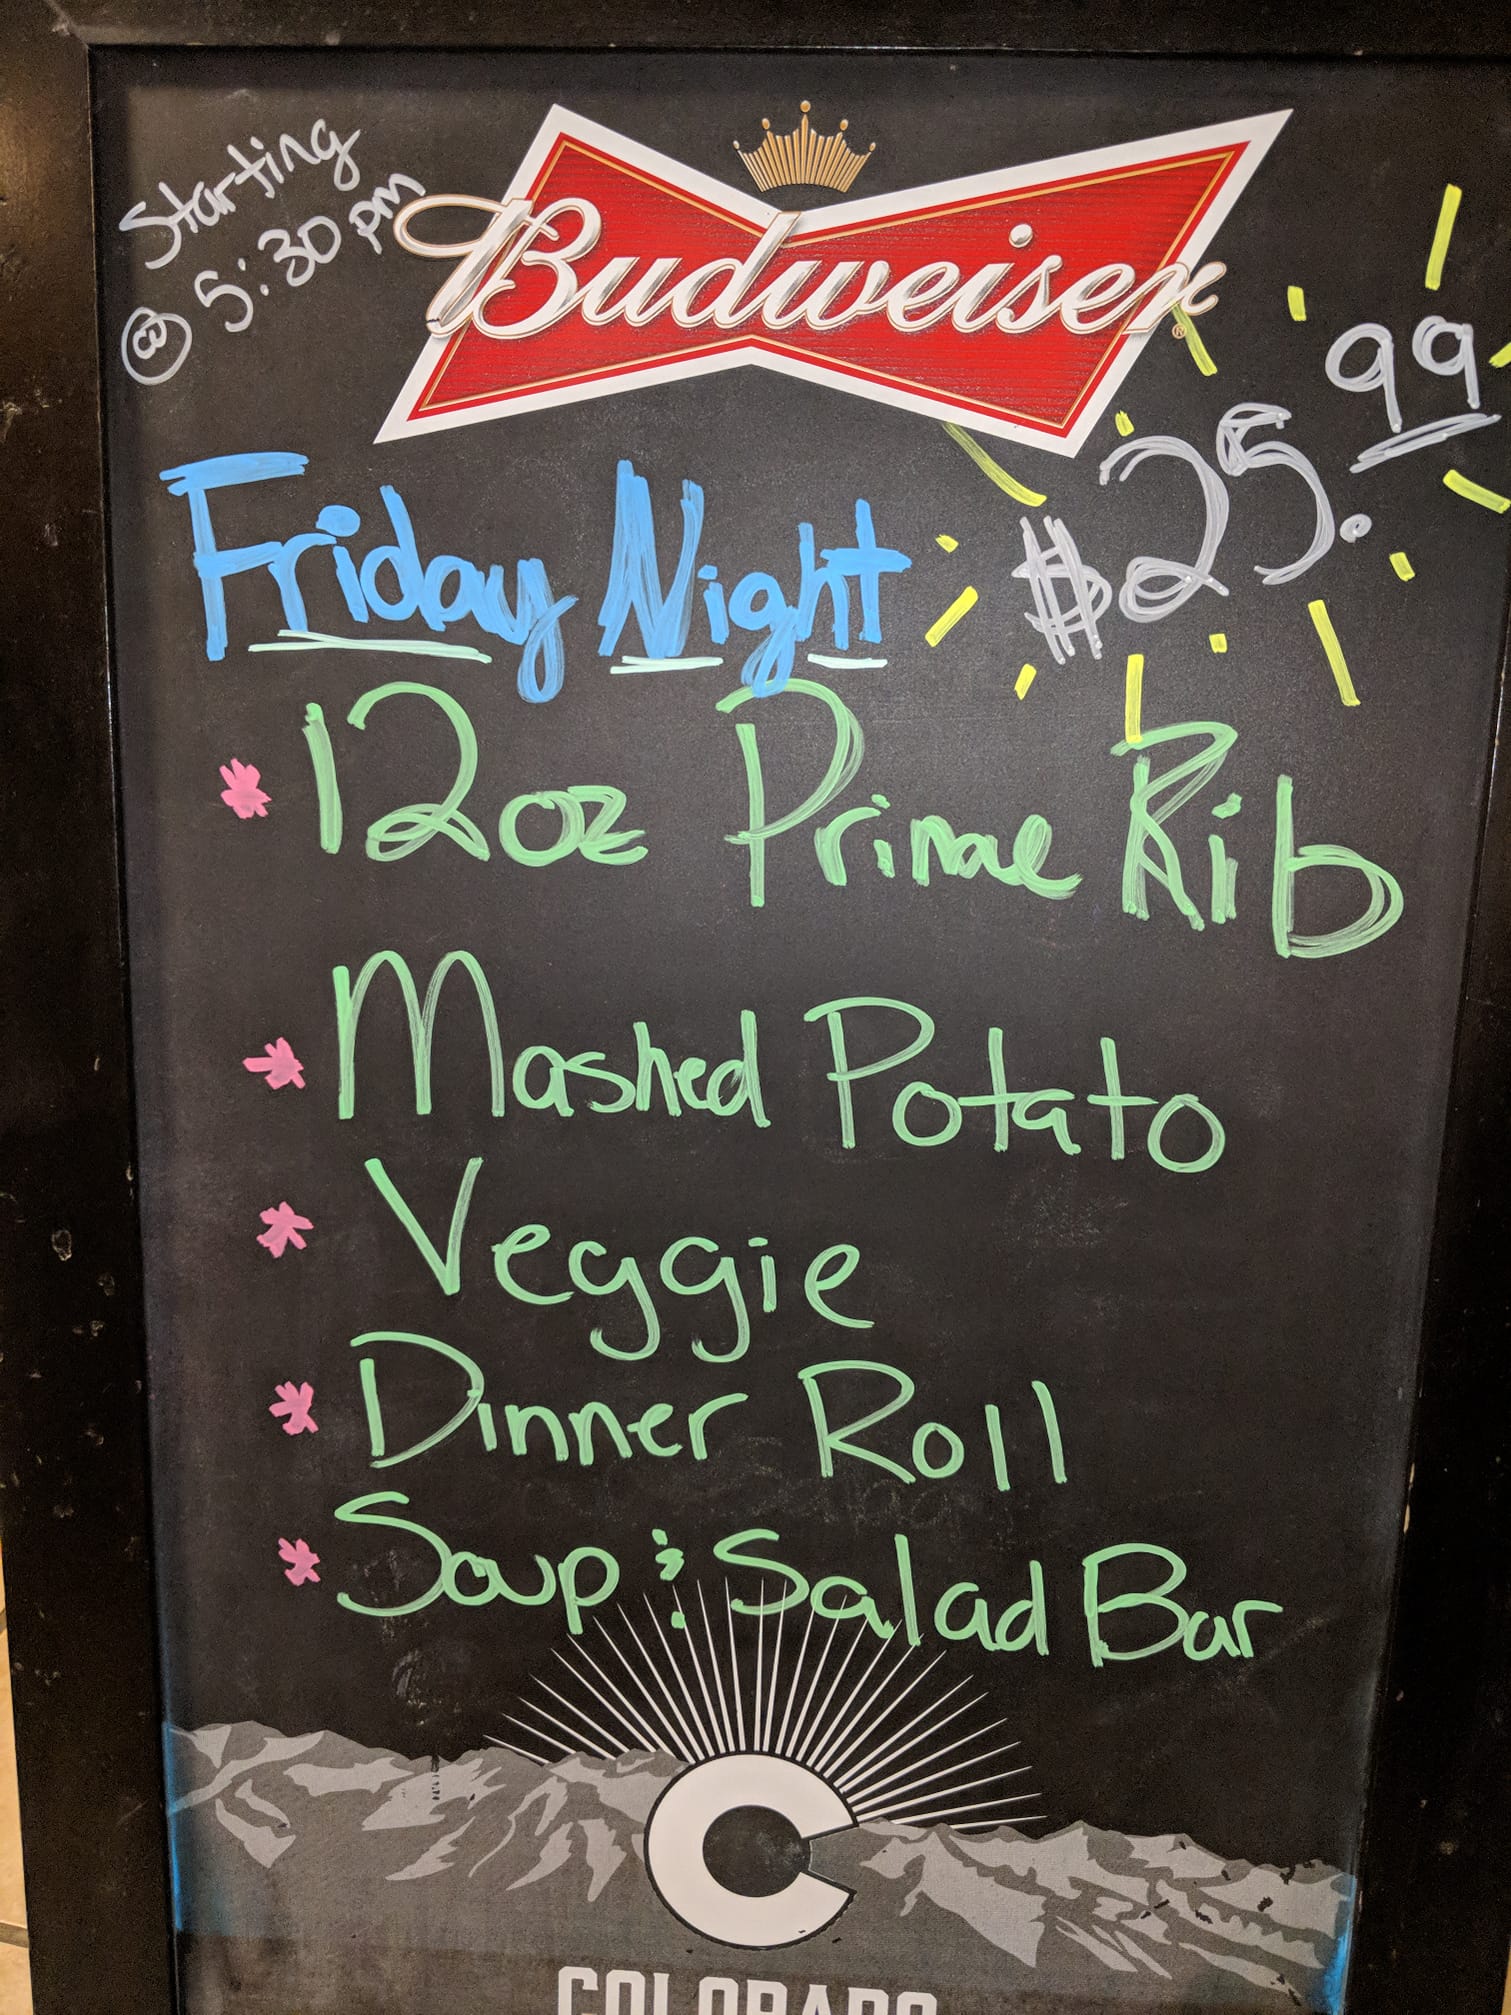 Starting
@ 5:30 pm
Budweiser®
$25.99
Friday Night
* 12oz Prime Rib
* Mashed Potato
* Veggie
* Dinner Roll
* Soup & Salad Bar
C
COLORADO